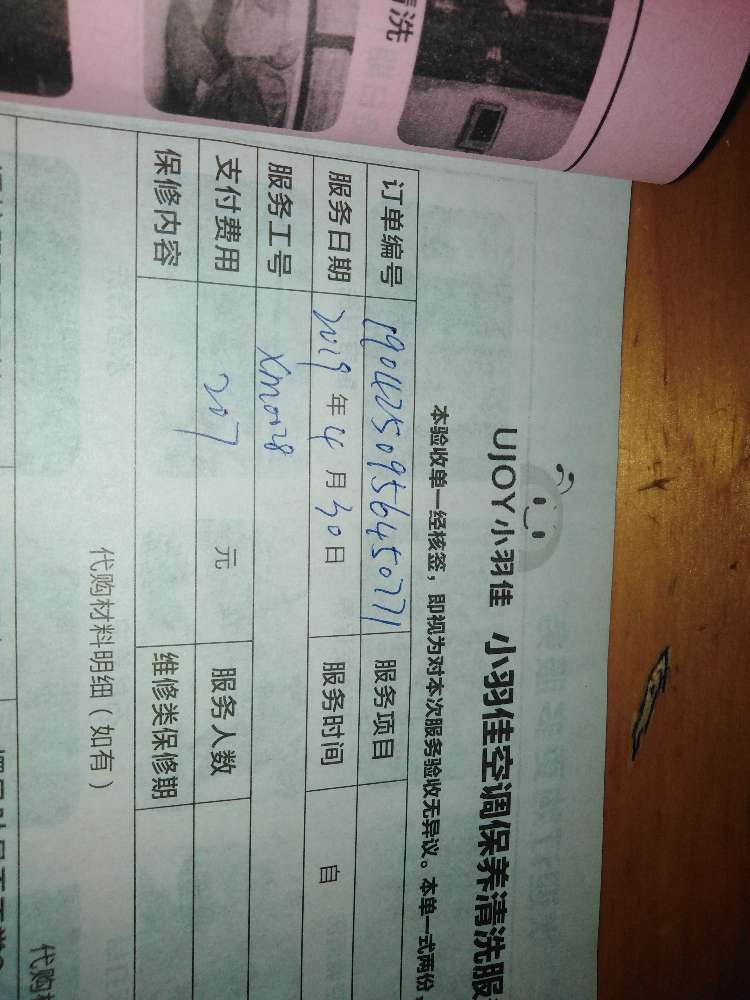 清洗
UJOY小羽佳 小羽佳空调保养清洗服
本验收单一经核签，即视为对本次服务验收无异议。本单一式两份，
订单编号 1904250956450771 服务项目
服务日期 2019 年 4 月 30 日 服务时间 自
服务工号 XM0028
支付费用 207 元 服务人数
保修内容 维修类保修期
代购材料明细（如有）
代购材